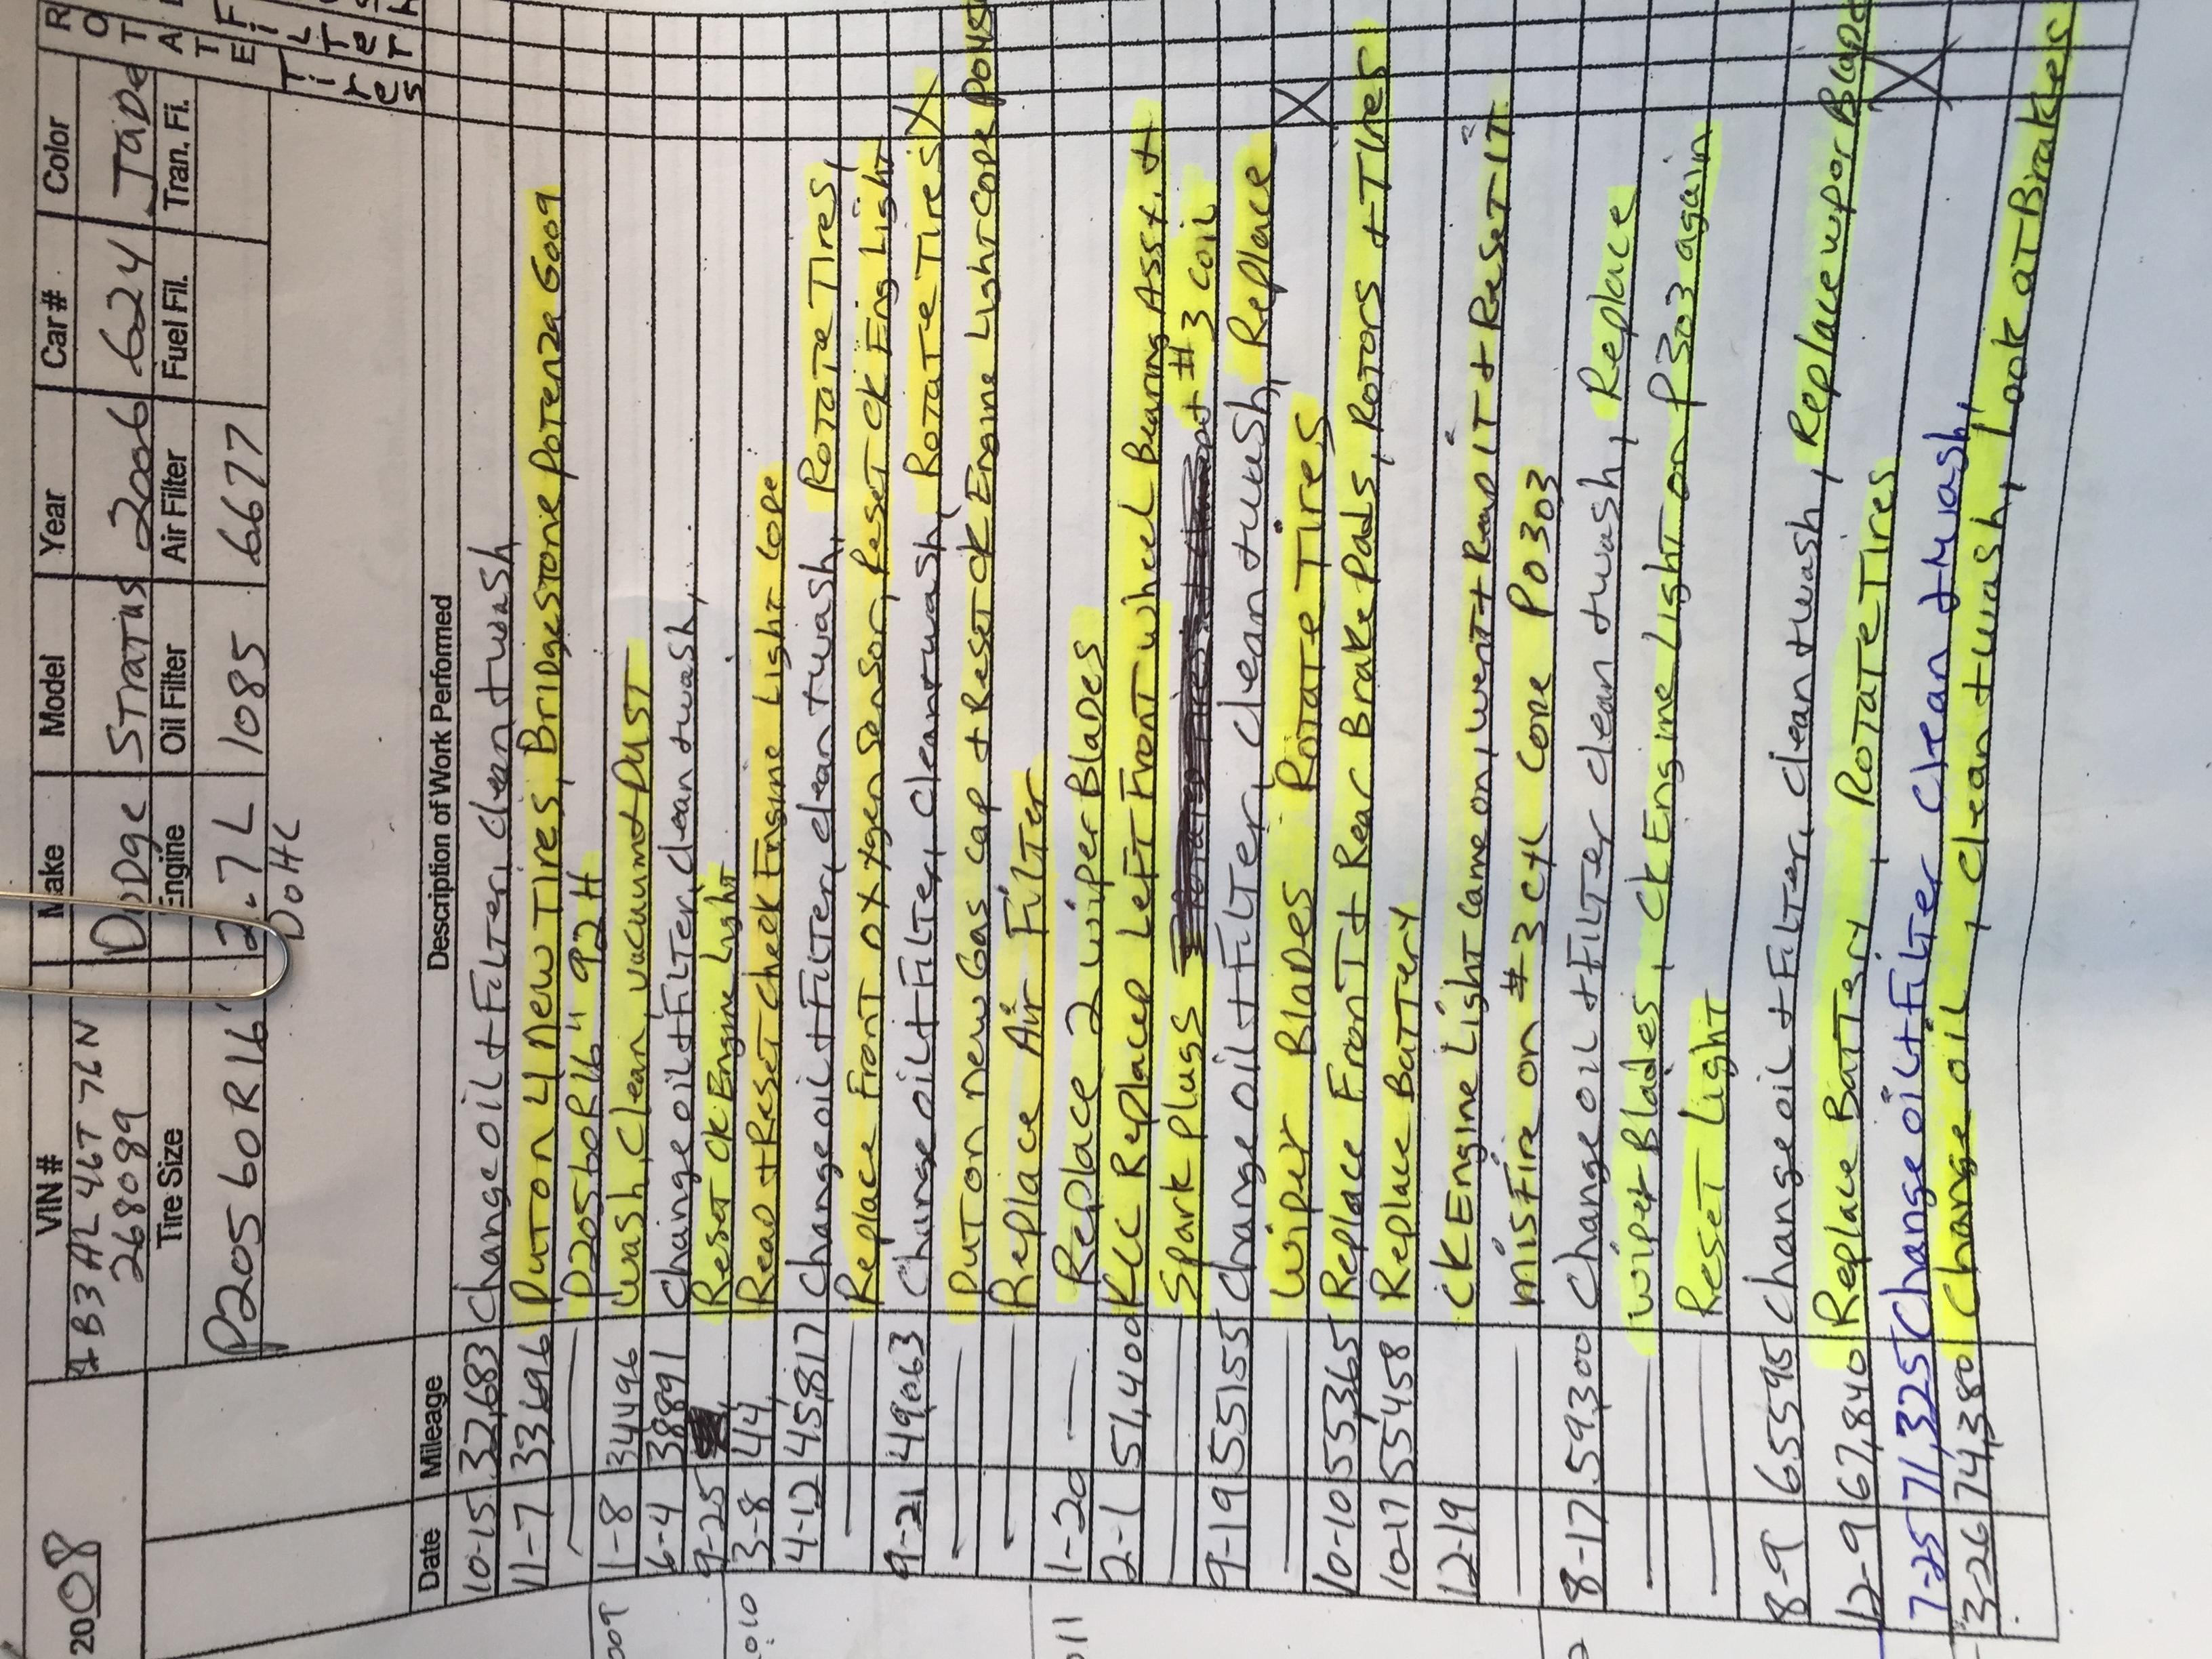 2008
VIN# Make Model Year Car# Color
1B3AL46T76N Dodge Stratus 2006 624 Jade
268089
Tire Size Engine Oil Filter Air Filter Fuel Fil. Tran. Fi.
P20560R16 2.7L 1085 6677
DOHC
ROTATE
Tires
Date Mileage Description of Work Performed
10-15 32,683 Change oil + Filter, clean + wash
11-7 33696 Put on 4 new Tires, Bridgestone Potenza G009
P20560R16" 92H
1-8 34496 wash, clean, vacuum + Dust
6-4 38891 Change oil + Filter, clean + wash,
9-25 Reset CK Engine Light
2010
3-8 44, Read + Reset Check Engine Light Code
4-12 45,817 Change oil + Filter, clean + wash, Rotate Tires,
Replace Front oxygen sensor, Reset CK Eng Light
9-21 49,063 Change oil + Filter, clean + wash, Rotate Tires X
Put on new Gas cap + Reset CK Engine Light Code
Replace Air Filter
1-20 Replace 2 wiper Blades
2-1 51,400 KCC Replaced Left Front wheel Bearing Asst. +
Spark Plugs #3 coil
9-19 55155 Change oil + Filter, clean + wash, Replace
wiper Blades Rotate Tires X
10-10 55,365 Replace Front + Rear Brake Pads, Rotors + Tires
10-17 55458 Replace Battery
12-19 CK Engine Light came on, went + Read it + Reset it
misfire on #3 cyl Code P0303
8-17 59,300 Change oil + Filter clean + wash, Replace
wiper Blades, CK Engine Light on P303 again
Reset Light
8-9 65595 Change oil + Filter, clean + wash, Replace wiper Blade
12-9 67,840 Replace Battery, Rotate Tires X
7-25 71,325 Change oil + Filter clean + wash
3-26 74,380 Change oil, clean + wash, look at Brakes